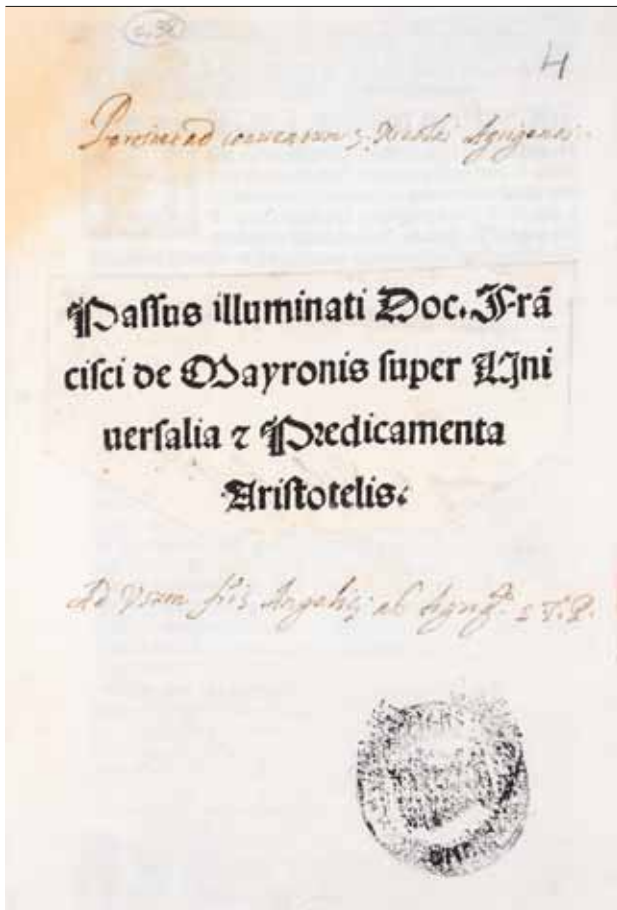 4
Pertinet ad conventum S. Nicolai Agrigenti
Passus illuminati Doc. Frã
cisci de Mayronis super Uni
uersalia ⁊ Predicamenta
Aristotelis.
Ad Vsum fris Angelici ab Agrigo S. T. P.